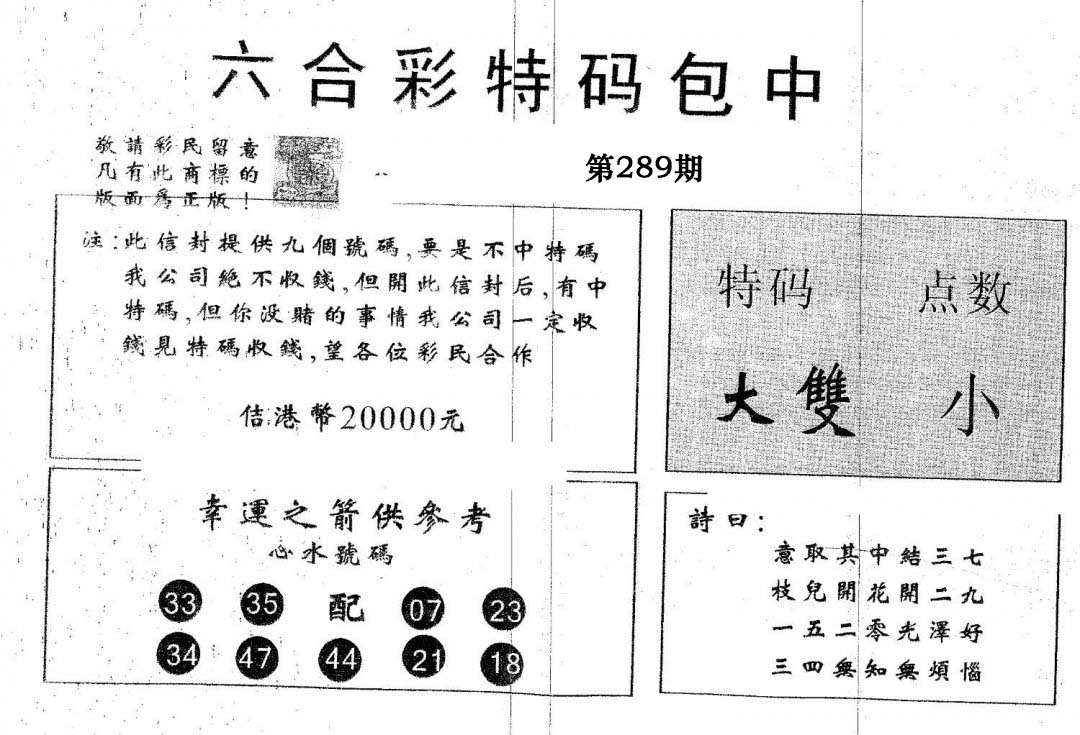 六合彩特码包中
敬請彩民留意
凡有此商標的
版面為正版！
第289期
注：此信封提供九個號碼，要是不中特碼
我公司絕不收錢，但開此信封后，有中
特碼，但你没賭的事情我公司一定收
錢見特碼收錢，望各位彩民合作
佶港幣20000元
特码 点数
大雙 小
幸運之箭供參考
心水號碼
33 35 配 07 23
34 47 44 21 18
詩曰：
意取其中結三七
枝兒開花開二九
一五二零光澤好
三四無知無煩惱